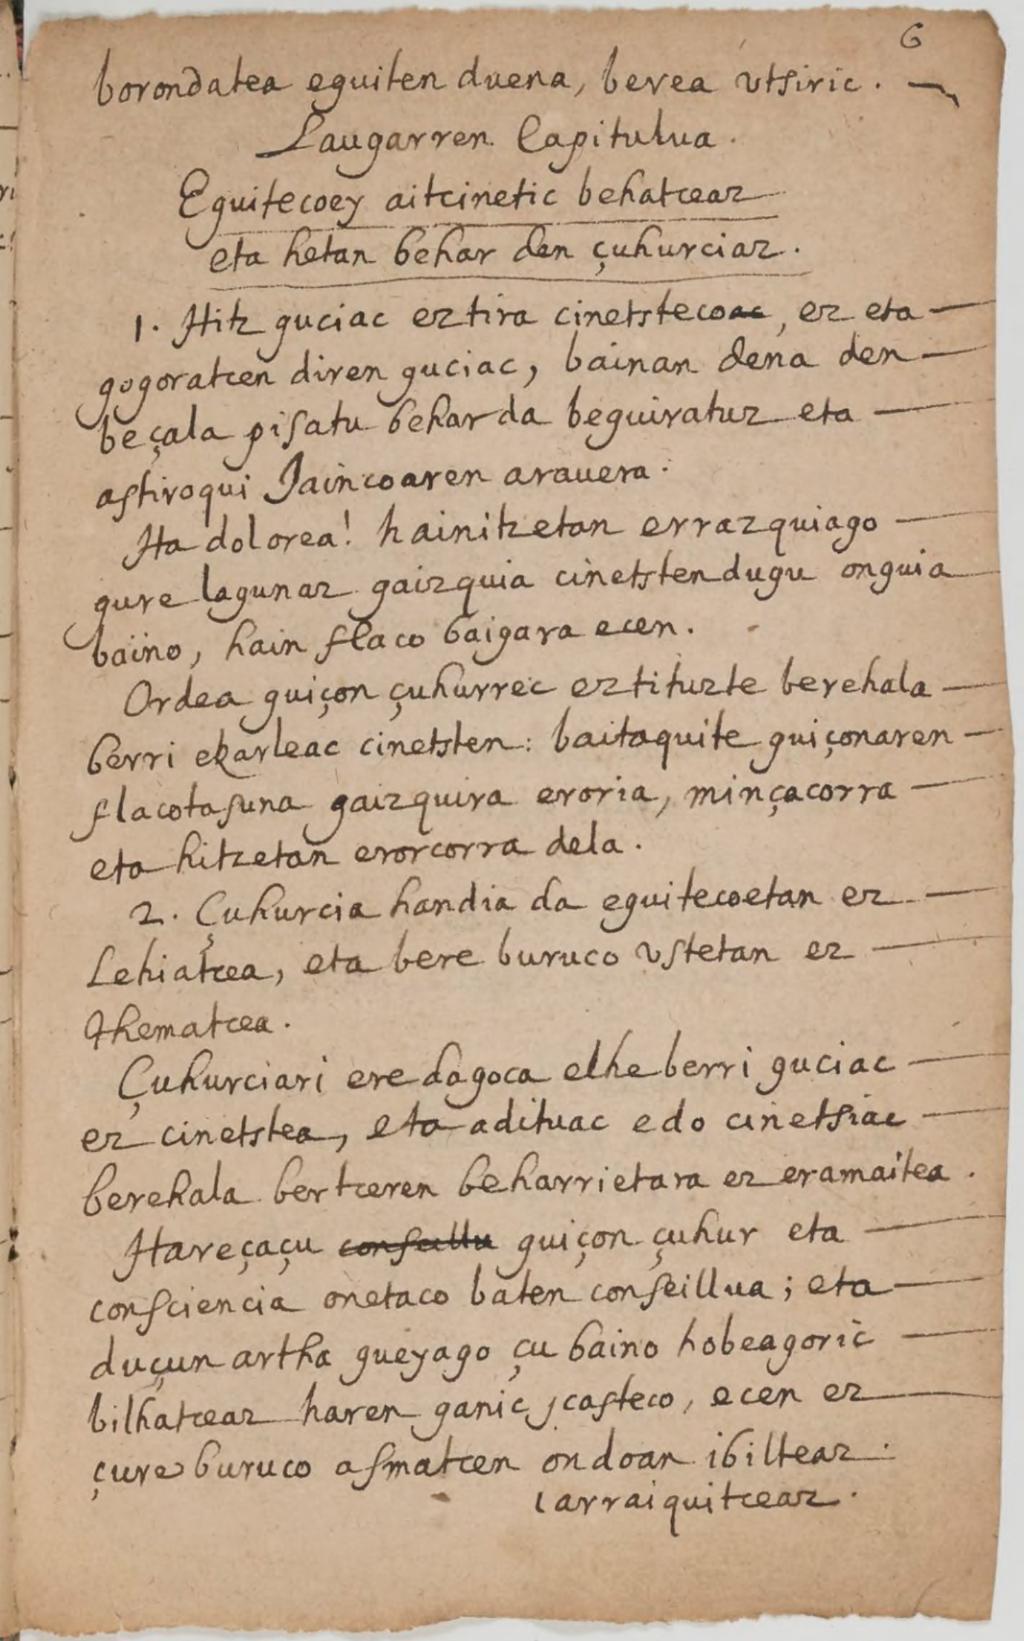 6
borondatea eguiten duena, berea vtsiric.
Laugarren Capitulua.
Eguitecoey aitcinetic behatceaz
eta hetan behar den çuhurciaz.
1. Hitz guciac eztira cinetstecoac, ez eta
gogoratcen diren guciac, bainan dena den
beçala pisatu behar da beguiratuz eta
astiroqui Jaincoaren arauera.
Ha dolorea! hainitzetan errazquiago
gure lagunaz gaizquia cinetsten dugu onguia
baino, hain flaco baigara ecen.
Ordea guiçon çuhurrec eztituzte berehala
berri ekarleac cinetsten: baitaquite guiçonaren
flacotasuna gaizquira eroria, minçacorra
eta hitzetan erorcorra dela.
2. Çuhurcia handia da eguitecoetan ez
Lehiatcea, eta bere buruco vstetan ez
Thematcea.
Çuhurciari ere dagoca elhe berri guciac
ez cinetstea, eta adituac edo cinetsiac
berehala bertceren beharrietara ez eramaitea.
Hareçaçu conseillu guiçon çuhur eta
consciencia onetaco baten conseillua; eta
duçun artha gueyago çu baino hobeagoric
bilhatceaz haren ganic jcasteco, ecen ez
çure buruco asmatcen ondoan ibilteaz.
iarraiquitceaz.